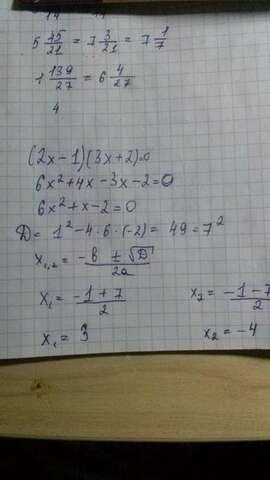 5 45/21 = 7 3/21 = 7 1/7
1 139/27 = 6 4/27
4
(2x-1)(3x+2)=0
6x²+4x-3x-2=0
6x²+x-2=0
D= 1²-4·6·(-2)= 49=7²
x₁,₂ = (-b ± √D)/2a
x₁= (-1+7)/2 x₂= (-1-7)/2
x₁= 3 x₂=-4